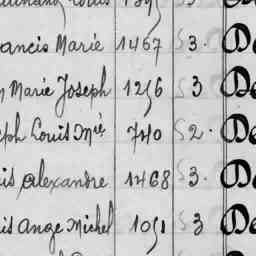 ancis Marie 1467 S 3. De
Marie Joseph 1256 S 3 De
eph Louis Mie 740 S 2. De
is Alexandre 1468 S 3. De
is Ange Michel 1051 S 3 De